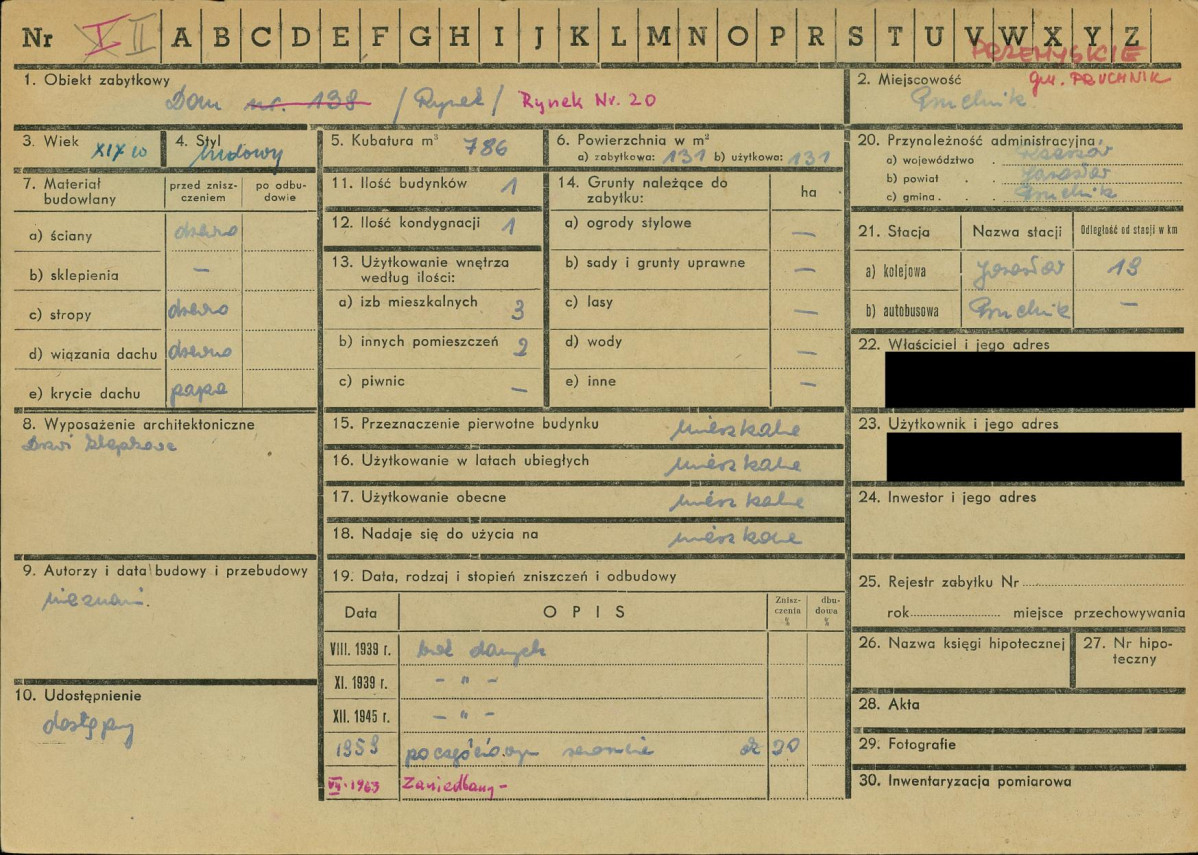 Nr I II A B C D E F G H I J K L M N O P R S T U V W X Y Z
PRZEMYSKIE
gm. PRUCHNIK
1. Obiekt zabytkowy
Dom nr. 138 /Rynek/ Rynek Nr. 20
2. Miejscowość
Pruchnik.
3. Wiek XIX
4. Styl ludowy
5. Kubatura m³ 786
6. Powierzchnia w m²
a) zabytkowa: 131 b) użytkowa: 131
7. Materiał budowlany
przed zniszczeniem
po odbudowie
a) ściany drewno
b) sklepienia –
c) stropy drewno
d) wiązania dachu drewno
e) krycie dachu papa
8. Wyposażenie architektoniczne
Drzwi klepkowe
9. Autorzy i data budowy i przebudowy
nieznani.
10. Udostępnienie
dostępny
11. Ilość budynków 1
12. Ilość kondygnacji 1
13. Użytkowanie wnętrza
według ilości:
a) izb mieszkalnych 3
b) innych pomieszczeń 2
c) piwnic –
14. Grunty należące do
zabytku:
ha
a) ogrody stylowe –
b) sady i grunty uprawne –
c) lasy –
d) wody –
e) inne –
15. Przeznaczenie pierwotne budynku mieszkalne
16. Użytkowanie w latach ubiegłych mieszkalne
17. Użytkowanie obecne mieszkalne
18. Nadaje się do użycia na mieszkalne
19. Data, rodzaj i stopień zniszczeń i odbudowy
Data OPIS Zniszczenia % dbudowa %
VIII. 1939 r. brak danych
XI. 1939 r. – " –
XII. 1945 r. – " –
1959 po częściowym remoncie ok 20
VII. 1963 Zaniedbany –
20. Przynależność administracyjna
a) województwo . Rzeszów
b) powiat . . Jarosław
c) gmina . . . Pruchnik
21. Stacja Nazwa stacji Odległość od stacji w km
a) kolejowa Jarosław 19
b) autobusowa Pruchnik –
22. Właściciel i jego adres
23. Użytkownik i jego adres
24. Inwestor i jego adres
25. Rejestr zabytku Nr
rok miejsce przechowywania
26. Nazwa księgi hipotecznej
27. Nr hipoteczny
28. Akta
29. Fotografie
30. Inwentaryzacja pomiarowa